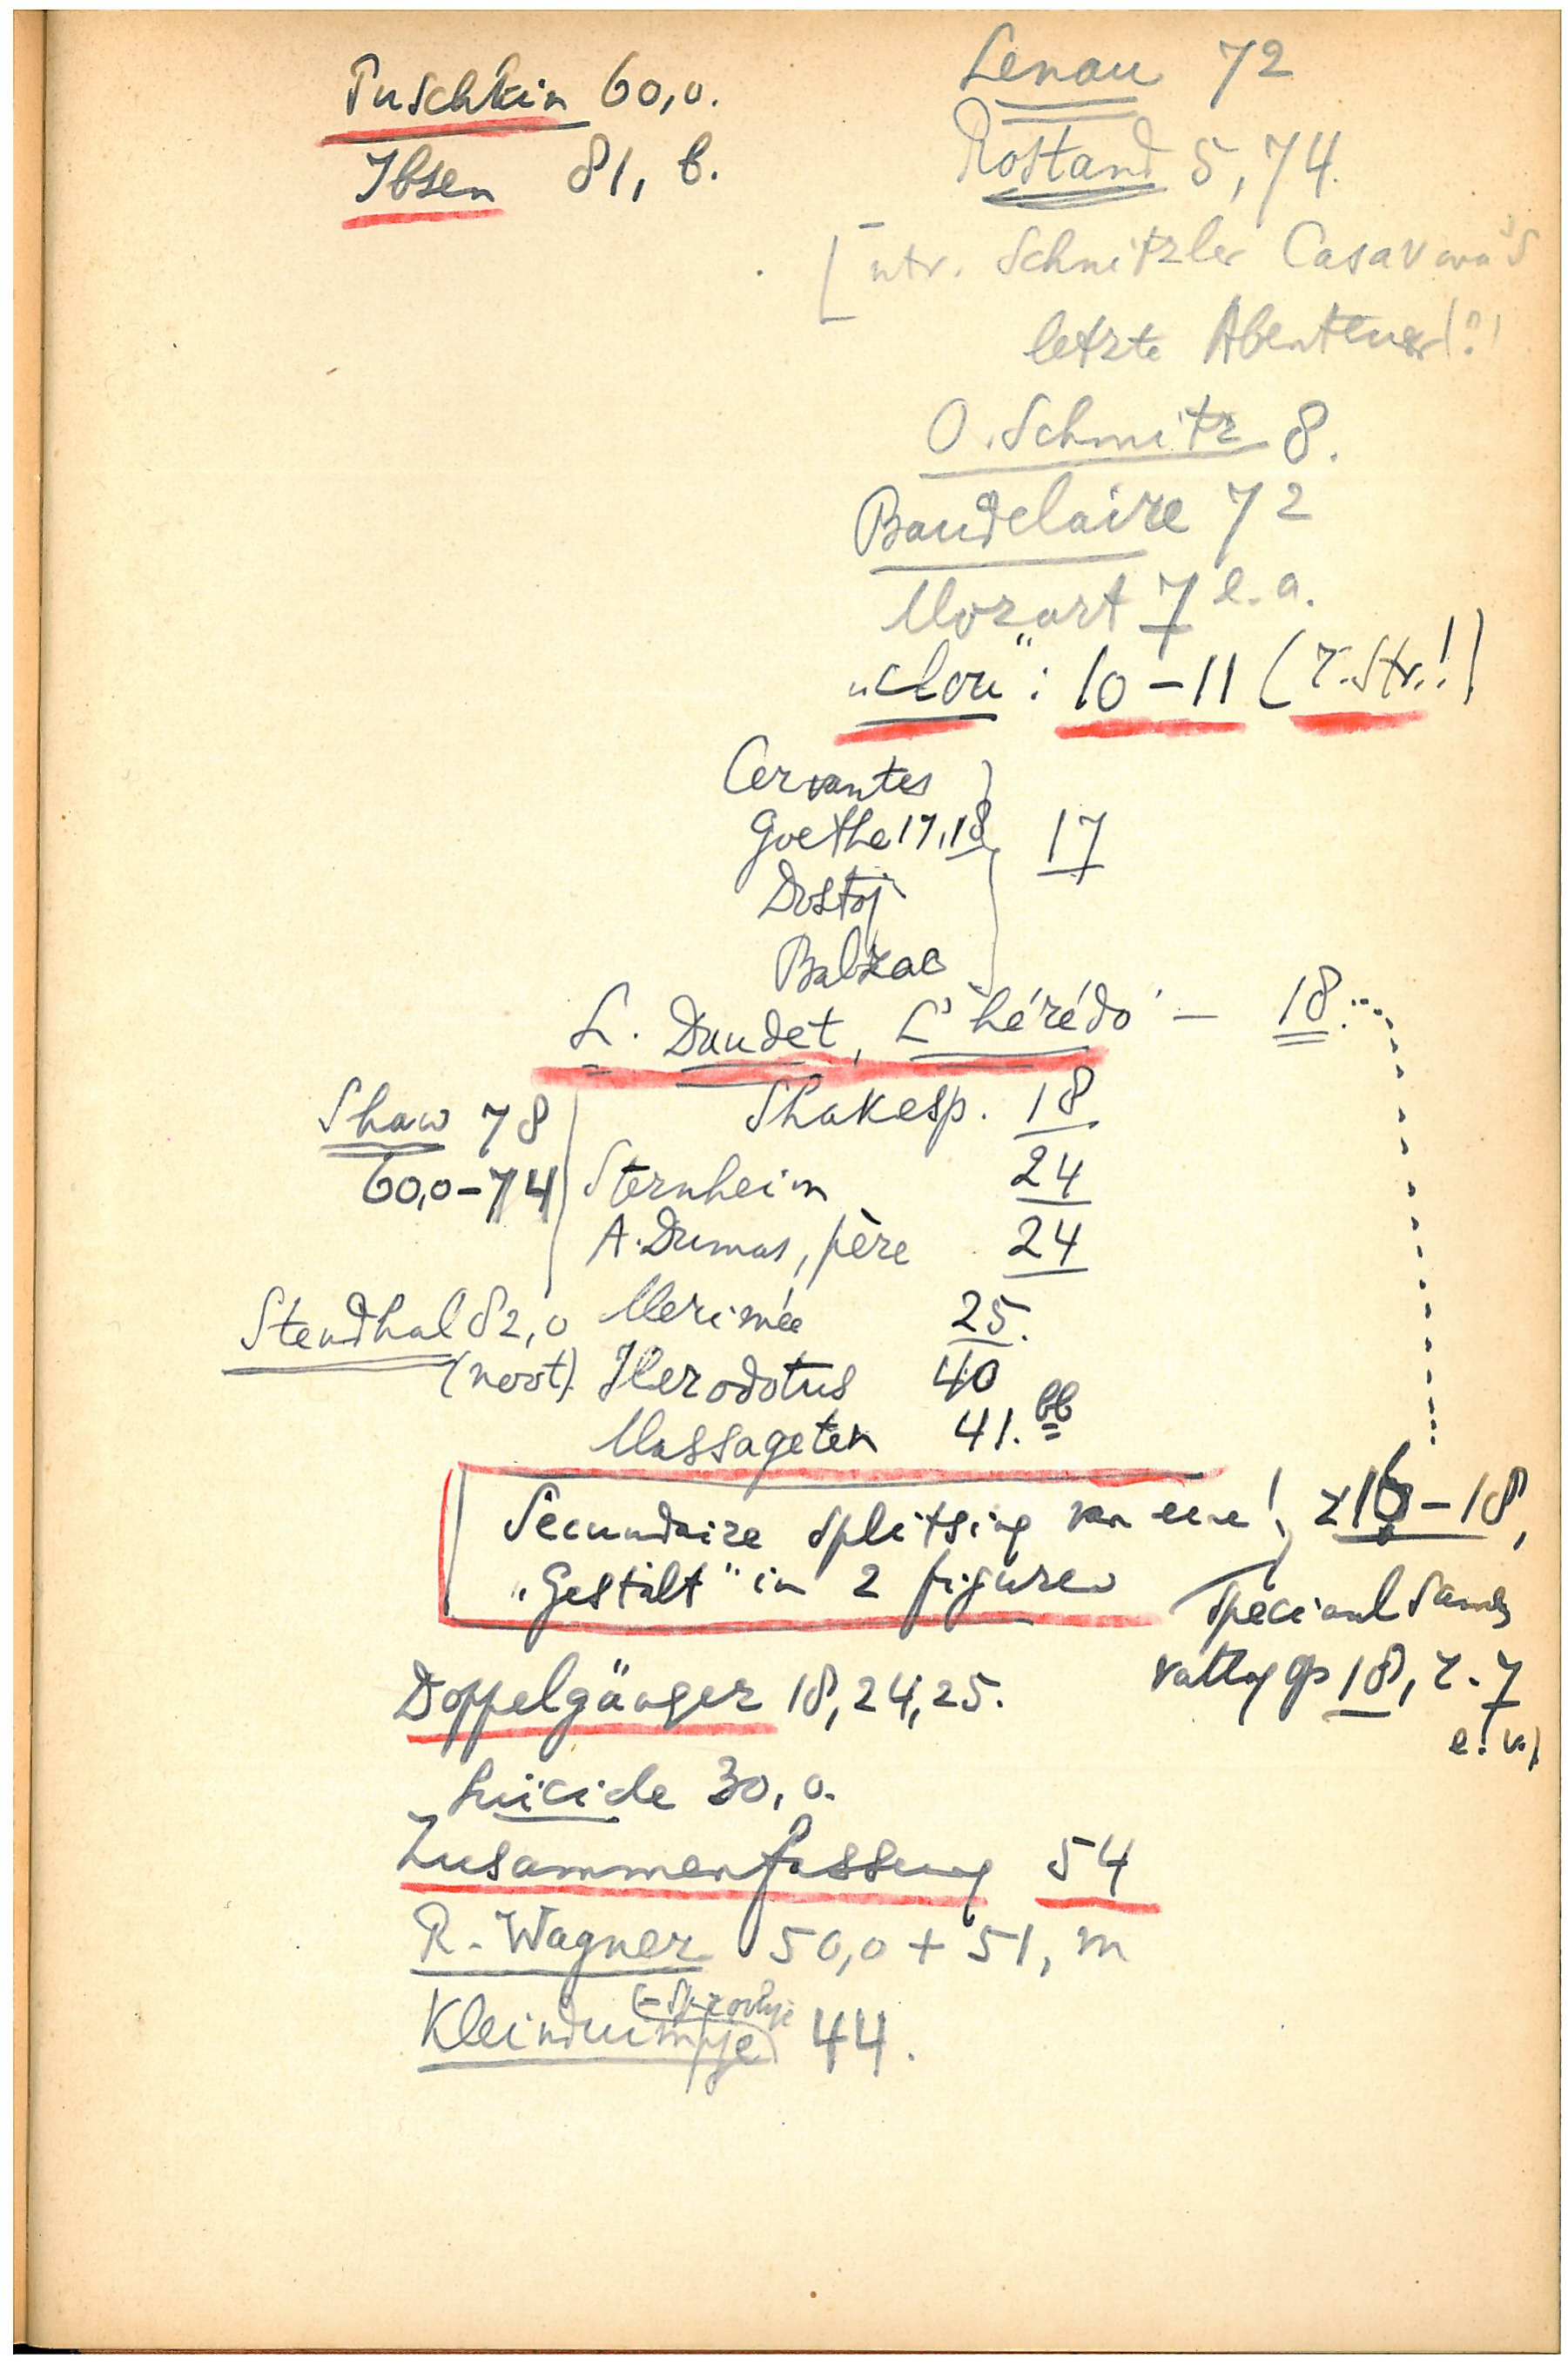 Puschkin 60,o.
Ibsen 81, b.
Lenau 72
Rostand 5,74.
[ntr. Schnitzler Casanova's
letzte Abenteuer!?!
O. Schmitz 8.
Baudelaire 72
Mozart 7 e.a.
"clou": 10-11 (z. Str.!)
Cervantes
Goethe 17,18
17
Dostoj
Balzac
L. Daudet, L'hérédo - 18.
Shaw 78
60,o-74
Shakesp. 18
Sternheim 24
A. Dumas, père 24
Stendhal 82,o
(noot).
Merimée 25.
Herodotus 40
Massageten 41. bb
Secundaire splitsing van eene!
"Gestalt" in 2 figuren
z 16-18,
speciaal samen
vattg op 18, z. 7
e.v.)
Doppelgänger 18,24,25.
Suicide 30, o.
Zusammenfassung 54
R. Wagner 50,o + 51, m
Kleinduimpje 44.